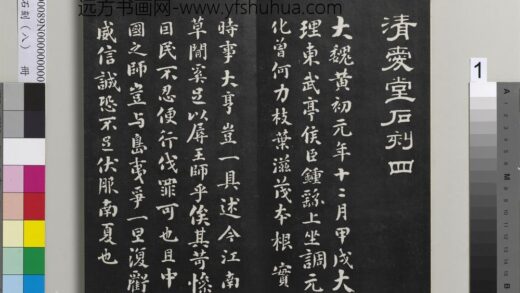 清愛堂石刻四
大魏黄初元年十二月甲戌大
理東武亭侯臣鍾繇上坐調元
化曾何力枝葉滋茂本根實
時事大亨豈一具述今江南
草間奚足以屏王師乎俟其苛慘
且民不忍便行伐罪可也且中
國之師豈与島夷爭一旦復爵
威信誠恐不足伏服南夏也
远方书画网-www.yfshuhua.com
石刻(八)
1